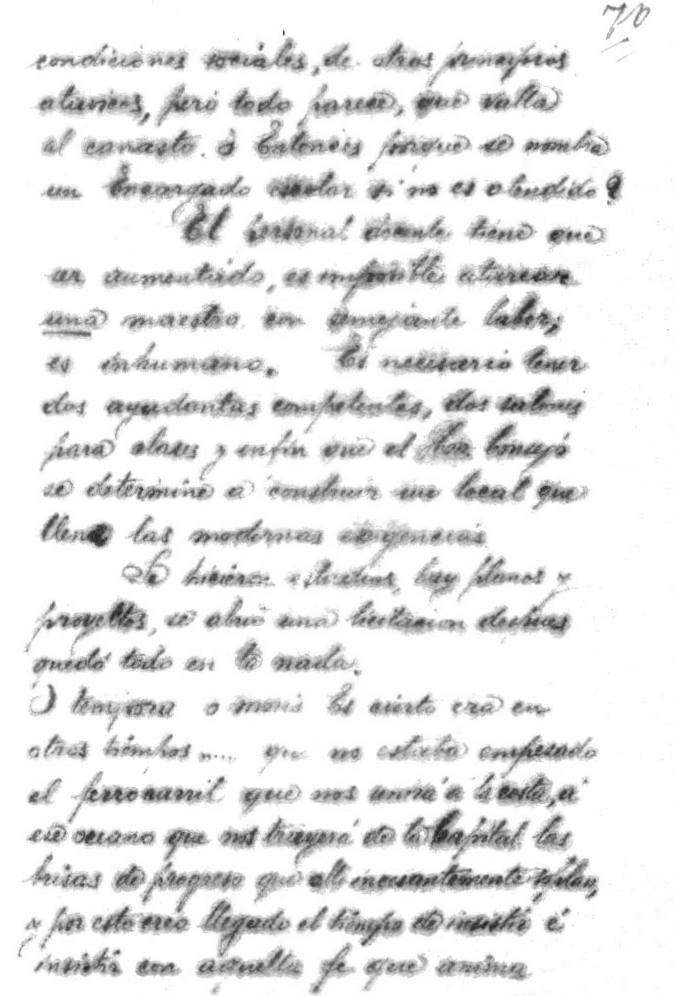 70
condiciones sociales, de otros principios
atavicos, pero todo parece, que valla
al canasto. ó Entonces porque se nombra
un Encargado escolar si no es atendido?
El personal docente tiene que
ser aumentado, es imposible atarear
una maestra con semejante labor;
es inhumano. Es necesario tener
dos ayudantas competentes, dos salones
para clases y enfin que el Hon. Consejo
se determine a construir un local que
llene las modernas exigencias
Se hicieron estudios, hay planos y
proyectos, se abrió una licitacion despues
quedó todo en la nada.
O tempora o mores Es cierto era en
otros tiempos..... que no estaba empesado
el ferrocarril que nos unirá a la costa, á
ese oceano que nos trayerá de la Capital las
brisas de progreso que alli incesantemente soplan,
y por esto creo llegado el tiempo de insistir é
insistir con aquella fe que anima